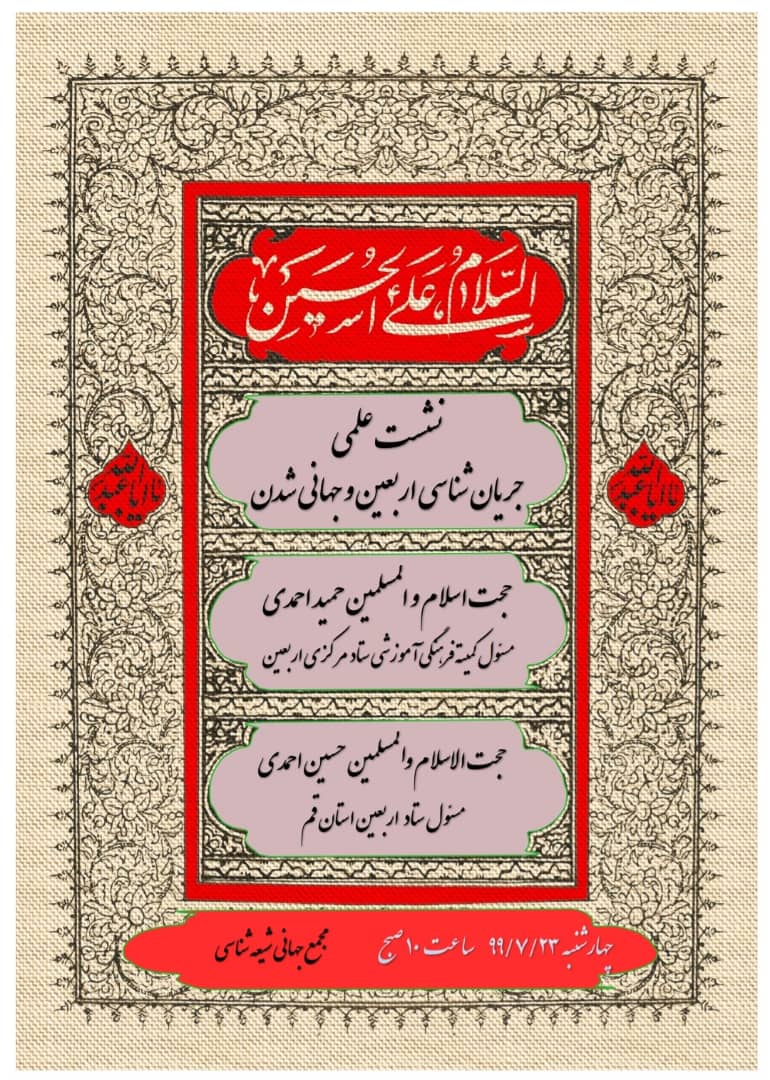 السلام علی الحسین
نشست علمی
جریان شناسی اربعین و جهانی شدن
یا اباعبدالله
یا اباعبدالله
حجت اسلام و المسلمین حمید احمدی
مسئول کمیته فرهنگی آموزشی ستاد مرکزی اربعین
حجت الاسلام والمسلمین حسین احمدی
مسئول ستاد اربعین استان قم
چهارشنبه ۹۹/۷/۲۳ ساعت ۱۰ صبح مجمع جهانی شیعه شناسی